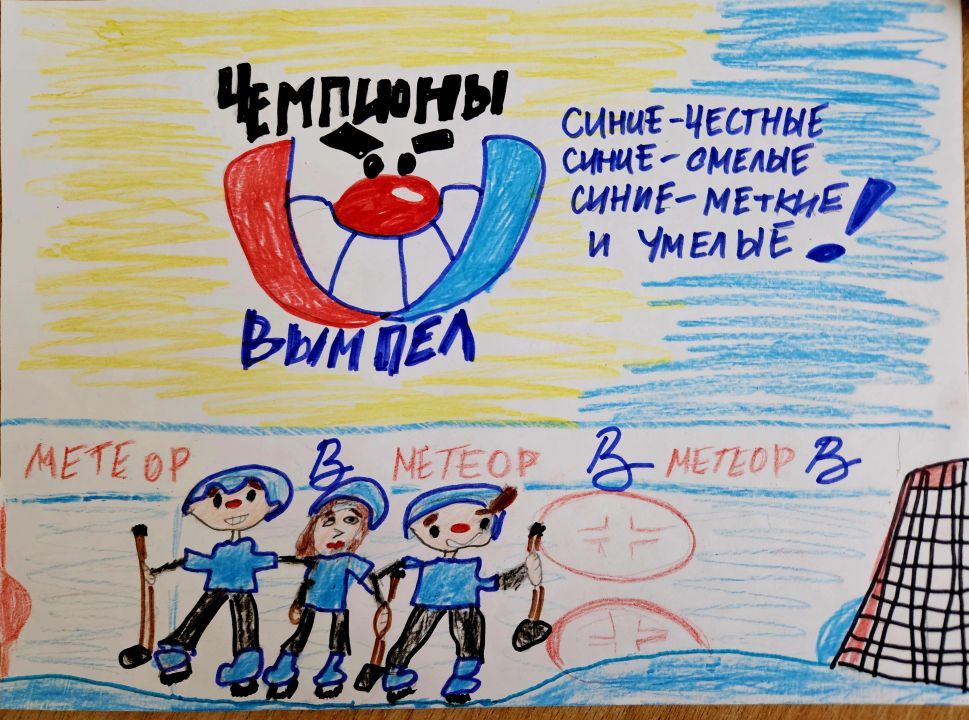 ЧЕМПИОНЫ
ВЫМПЕЛ
СИНИЕ-ЧЕСТНЫЕ
СИНИЕ-СМЕЛЫЕ
СИНИЕ-МЕТКИЕ
И УМЕЛЫЕ!
МЕТЕОР В МЕТЕОР В МЕТЕОР В